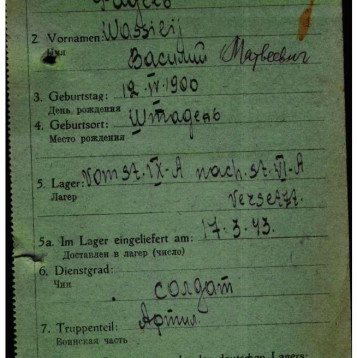 2. Vornamen: Wassilij
Имя Василий Матвеевич
3. Geburtstag: 12 IV 1900
День рождения
4. Geburtsort: Штадень
Место рождения
5. Lager: Vom st. IX-A nach. st. VI-A
Лагер Versetzt.
5a. Im Lager eingeliefert am: 17-3-43.
Доставлен в лагер (число)
6. Dienstgrad:
Чин солдат
7. Truppenteil: Артил.
Воинская часть
deutschen Lagers: